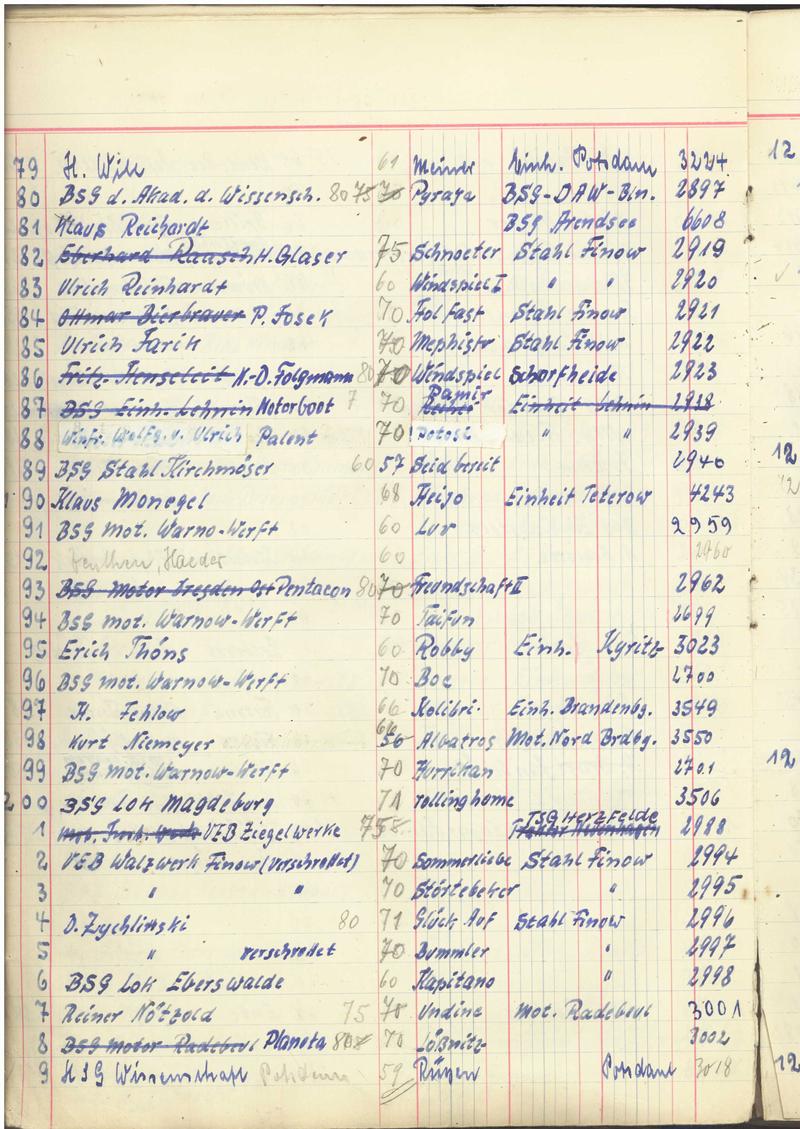 79 H. Will 61 Einh. Potsdam 3224 12
80 BSG d. Akad. d. Wissensch. 80 75 70 Pyraya BSG-DAW-Bln. 2897
81 Klaus Reichardt BSG Arendsee 6608
82 Eberhard Raasch H. Glaser 75 Schnoeter Stahl Finow 2919
83 Ulrich Reinhardt 60 Windspiel I " " 2920
84 Ottmar Bierbrauer P. Fosek 70 Hol fast Stahl Finow 2921
85 Ulrich Farik 70 Mephisto Stahl Finow 2922
86 Fritz Henseleit K.-D. Folgmann 80 70 Windspiel Schorfheide 2923
87 BSG Einh. Lehnin Motorboot 7 70 Pamir Einheit Lehnin 2938
88 Winfr. Wolfg. u. Ulrich Palent 70 Potosi " " 2939
89 BSG Stahl Kirchmöser 60 57 Seid bereit 2940 12
90 Klaus Monegel 68 Heijo Einheit Teterow 4243 12
91 BSG mot. Warno-Werft 60 Luv 2959
92 Haeder 60 2960
93 BSG Motor Dresden Ost Pentacon 80 70 Freundschaft II 2962
94 BSG mot. Warnow-Werft 70 Taifun 2699
95 Erich Thöns 60 Robby Einh. Kyritz 3023
96 BSG mot. Warnow-Werft 70 Boe 2700
97 H. Fehlow 66 Kolibri Einh. Brandenbg. 3549
98 Kurt Niemeyer 66 56 Albatros Mot. Nord Brdbg. 3550
99 BSG mot. Warnow-Werft 70 Hurrikan 2701 12
200 BSG Lok Magdeburg 71 rolling home 3506
1 VEB Ziegelwerke 75 58 TSG Herzfelde 2988
2 VEB Walzwerk Finow (verschrottet) 70 Sommerliebe Stahl Finow 2994
3 " " 70 Störtebeker " 2995
4 D. Zychlinski 80 71 Glück Auf Stahl Finow 2996
5 " verschrottet 70 Bummler " 2997
6 BSG Lok Eberswalde 60 Kapitano " 2998
7 Reiner Nötzold 75 70 Undine Mot. Radebeul 3001
8 BSG Motor Radebeul Planeta 80 70 Lößnitz 3002
9 HSG Wissenschaft Potsdam 59 Rügen Potsdam 3018 12